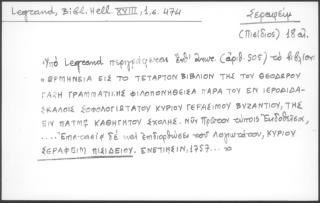 Legrand, Bibl. Hell. XVIII, 1, σ. 474
Σεραφείμ
(Πισίδιος) 18 αἰ.
Ὑπὸ Legrand περιγράφεται (ἀριθ. 505) τὸ βιβλίον:
«ΕΡΜΗΝΕΙΑ ΕΙΣ ΤΟ ΤΕΤΑΡΤΟΝ ΒΙΒΛΙΟΝ ΤΗΣ ΤΟΥ ΘΕΟΔΩΡΟΥ
ΓΑΖΗ ΓΡΑΜΜΑΤΙΚΗΣ ΦΙΛΟΠΟΝΗΘΕΙΣΑ ΠΑΡΑ ΤΟΥ ΕΝ ΙΕΡΟΔΙΔΑ-
ΣΚΑΛΟΙΣ ΣΟΦΟΛΟΓΙΩΤΑΤΟΥ ΚΥΡΙΟΥ ΓΕΡΑΣΙΜΟΥ ΒΥΖΑΝΤΙΟΥ, ΤΗΣ
ΕΝ ΠΑΤΜῼ ΚΑΘΗΓΗΤΟΥ ΣΧΟΛΗΣ. Νῦν Πρῶτον τύποις Ἐκδοθεῖσα,
.... Ἐπιστασίᾳ δὲ καὶ ἐπιδιορθώσει τοῦ Λογιωτάτου, ΚΥΡΙΟΥ
ΣΕΡΑΦΕΙΜ ΠΙΣΙΔΕΙΟΥ. ΕΝΕΤΙΗΣΙΝ, 1757... »